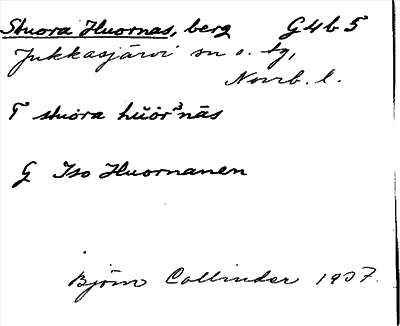 Stuora Huornas, berg G4b5
Jukkasjärvi sn o. tg,
Norrb. l.
F stuora hŭör³nás
G Iso Huornanen
Björn Collinder 1937.